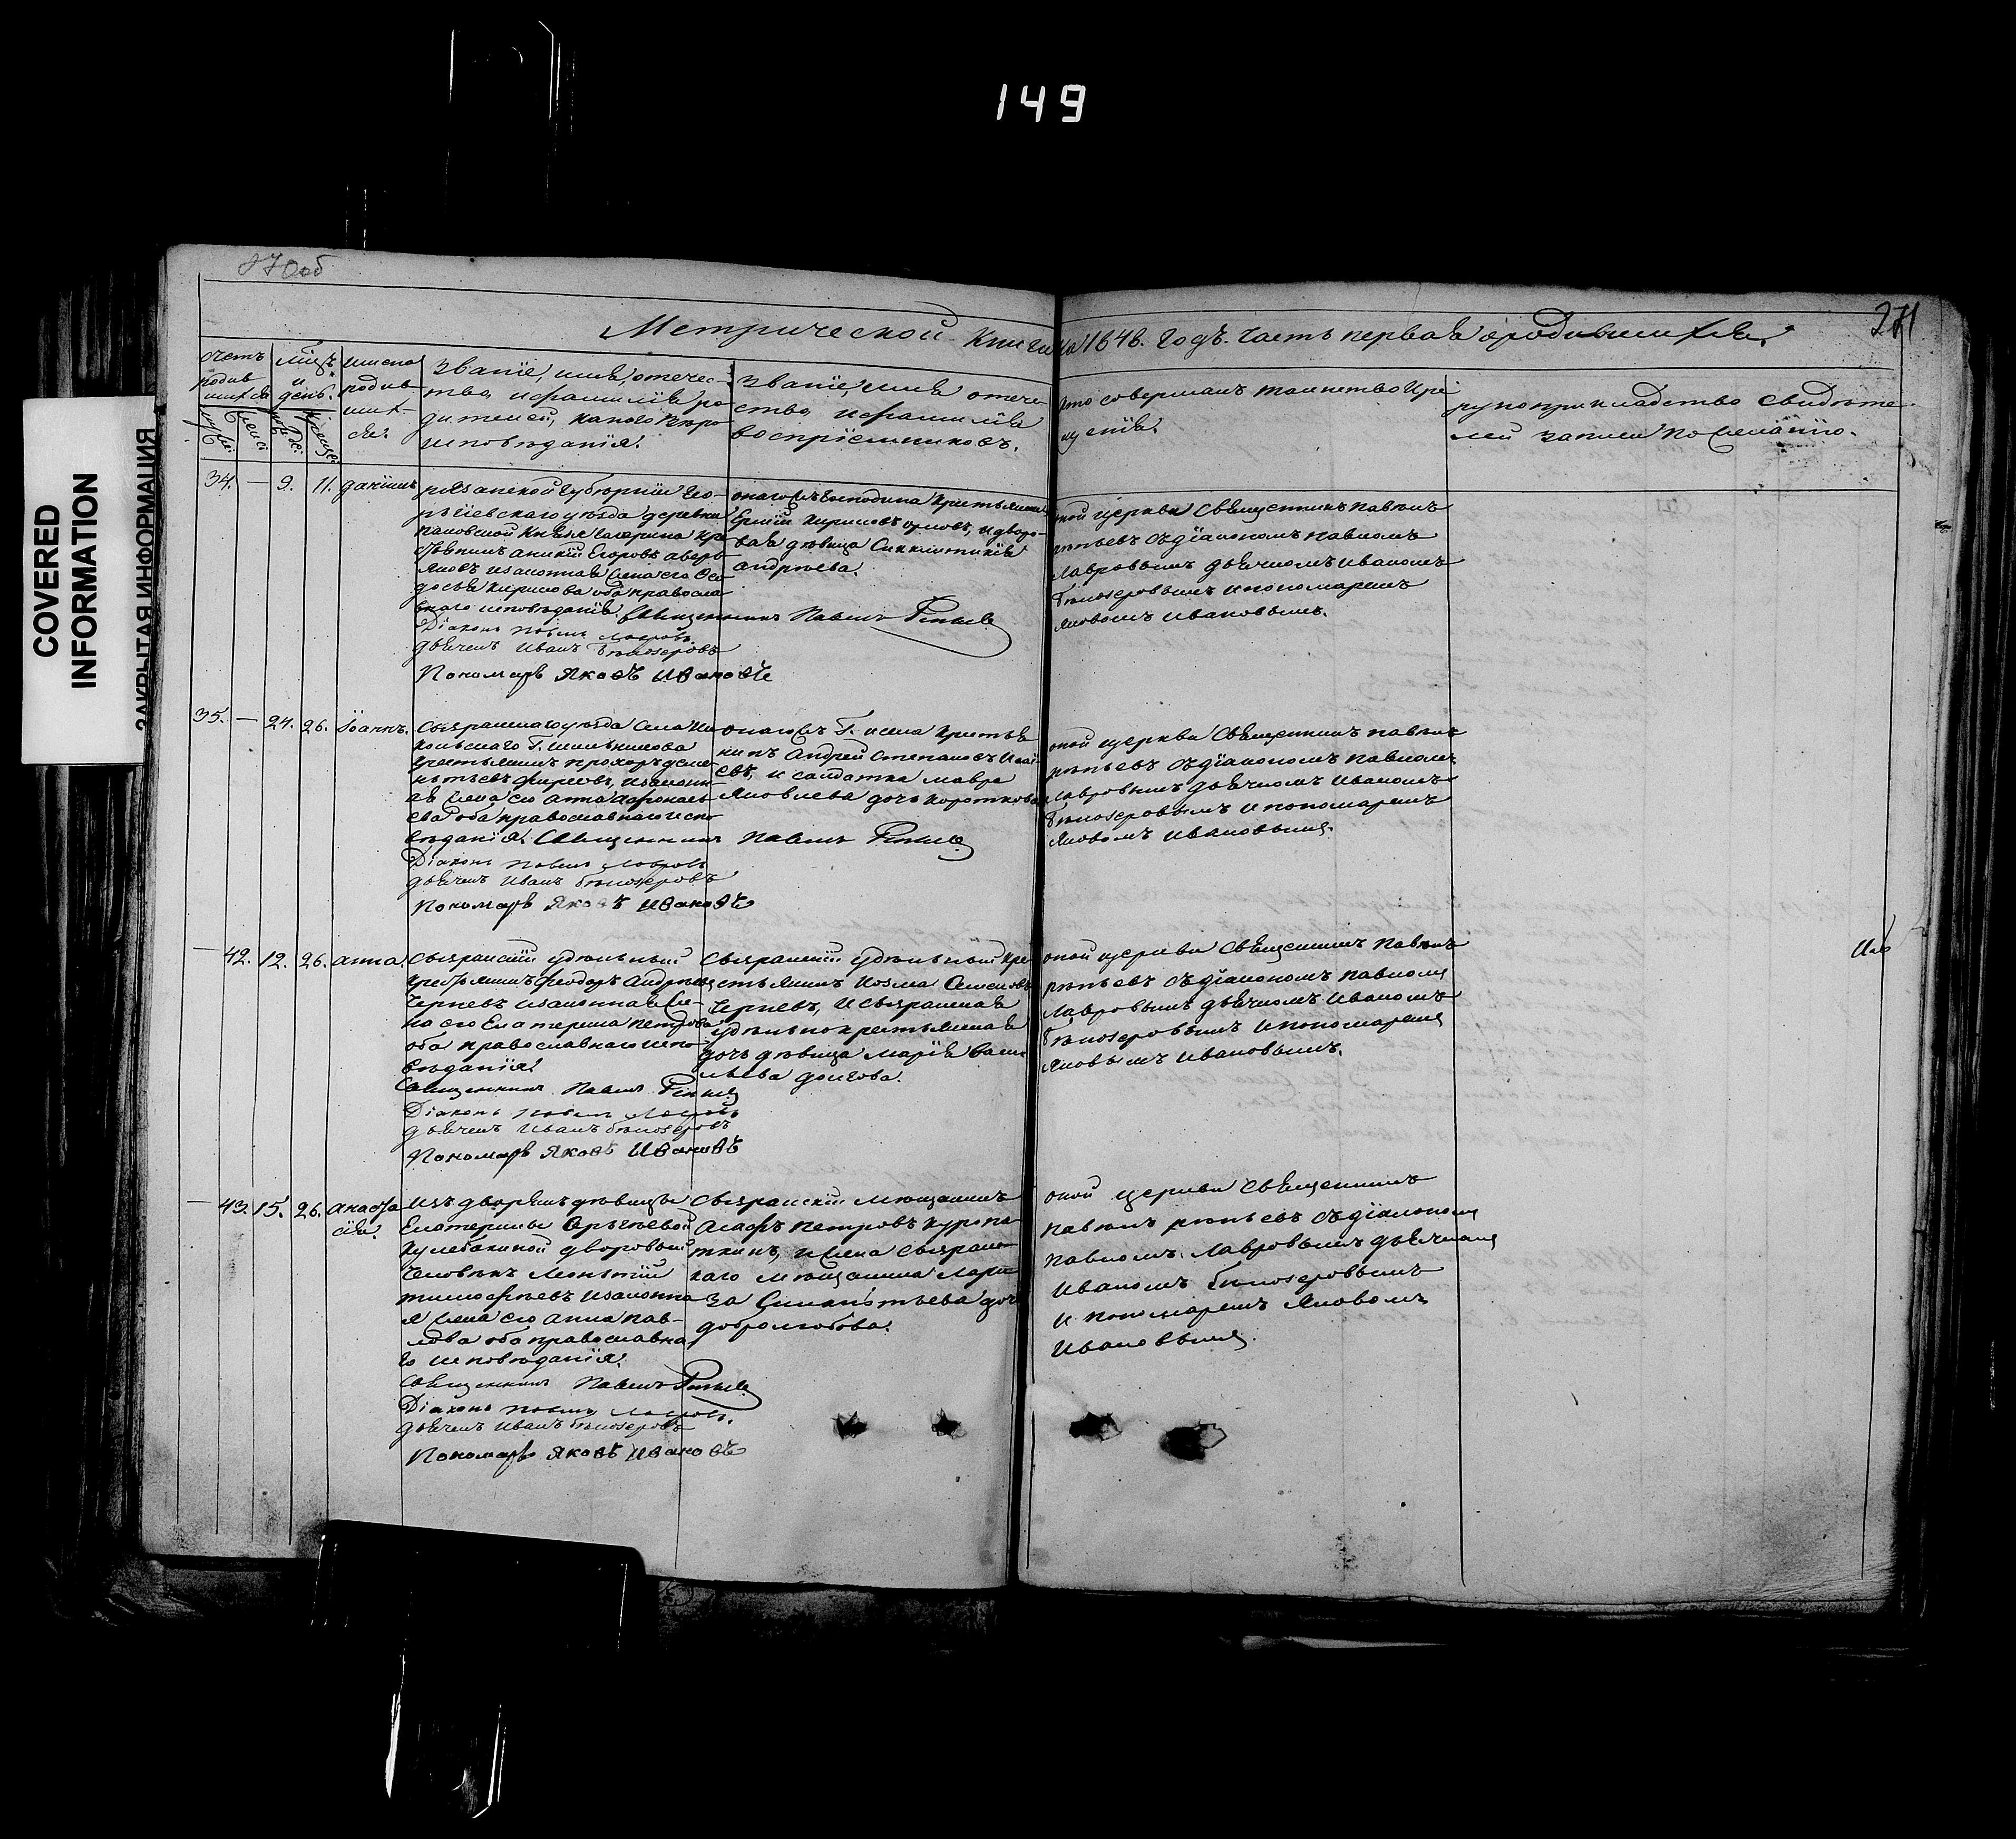 149
COVERED
INFORMATION
ЗАКРЫТАЯ ИНФОРМАЦИЯ
270об
271
Метрической книги на 1846. годъ. часть первая о родившихся.
счетъ
родив
шихся
мѣсяцъ
и
день.
имена
родив
ших-
ся.
званіе, имя, отече-
тво, и фамилія ро
дителей, какого вѣро
исповѣданія.
званіе, имя отече-
ство, и фамилія
воспріемниковъ.
кто совершалъ таинство кре
щенія.
рукоприкладство свидѣте-
лей записи по желанію.
34. — 9. 11.
рязанской губерніи его-
рьевскаго уѣзда деревни
князя Гагарина кре
Егоровъ аверь
яновъ и законная жена его Ѳео
досья Кирилова оба правосла
внаго исповѣданія. Священникъ Павелъ
Діаконъ Павелъ Лавровъ
дьячекъ Иванъ Бѣлозеровъ
Пономарь Яковъ Ивановъ
онаго жъ господина крестьянинъ
Кириловъ орловъ, и дворо-
вая дѣвица Синклитикія
андреева.
оной церкви Священникъ Павелъ
рѣпьевъ съ діакономъ павломъ
лавровымъ дьячкомъ иваномъ
бѣлозеровымъ и пономаремъ
яковомъ ивановымъ.
35. — 24. 26. Іоаннъ.
Сызранскаго уѣзда села Ни
кольскаго Г.
крестьянинъ прохоръ деме
нтьевъ фирсовъ, и законн-
ая жена его анна
ева оба православнаго испо
вѣданія. Священникъ Павелъ
Діаконъ Павелъ Лавровъ
дьячекъ Иванъ Бѣлозеровъ
Пономарь Яковъ Ивановъ
онаго жъ Г. и села крестья
нинъ Андрей Степановъ
евъ, и салдатка мавра
Яковлева дочь короткова
оной церкви Священникъ павелъ
рѣпьевъ съ діакономъ павломъ
лавровымъ дьячкомъ иваномъ
бѣлозеровымъ и пономаремъ
яковомъ ивановымъ.
— 42. 12. 26. анна.
Сызранскій удѣльный
крестьянинъ феодоръ Андреевъ
Черневъ и законная же-
на его Екатерина петрова
оба православнаго испо-
вѣданія.
Священникъ Павелъ
Діаконъ Павелъ Лавровъ
дьячекъ Иванъ Бѣлозеровъ
Пономарь Яковъ Ивановъ
Сызранскій удѣльный кре
стьянинъ Козма Семеновъ
Черневъ, и Сызранская
удѣльнокрестьянская
дочь дѣвица марія васи
льева долгова.
оной церкви Священникъ павелъ
рѣпьевъ съ діакономъ павломъ
лавровымъ дьячкомъ иваномъ
бѣлозеровымъ и пономаремъ
яковымъ ивановымъ.
— 43. 15. 26. анаста
сія.
Изъ дворянъ дѣвицы
Екатерины
Кулебакиной дворовый
человѣкъ
тимофѣевъ и законна
я жена его анна пав-
лова оба православна
го исповѣданія.
Священникъ Павелъ
Діаконъ Павелъ Лавровъ.
дьячекъ Иванъ Бѣлозеровъ
Пономарь Яковъ Ивановъ
Сызранскій мѣщанинъ
петровъ куропа
ткинъ, и жена сызранс
каго мѣщанина
дочь
добролюбова.
оной церкви Священникъ
павелъ рѣпьевъ съ діакономъ
павломъ лавровымъ дьячкомъ
Иваномъ бѣлозеровымъ
и пономаремъ Яковомъ
Ивановымъ.